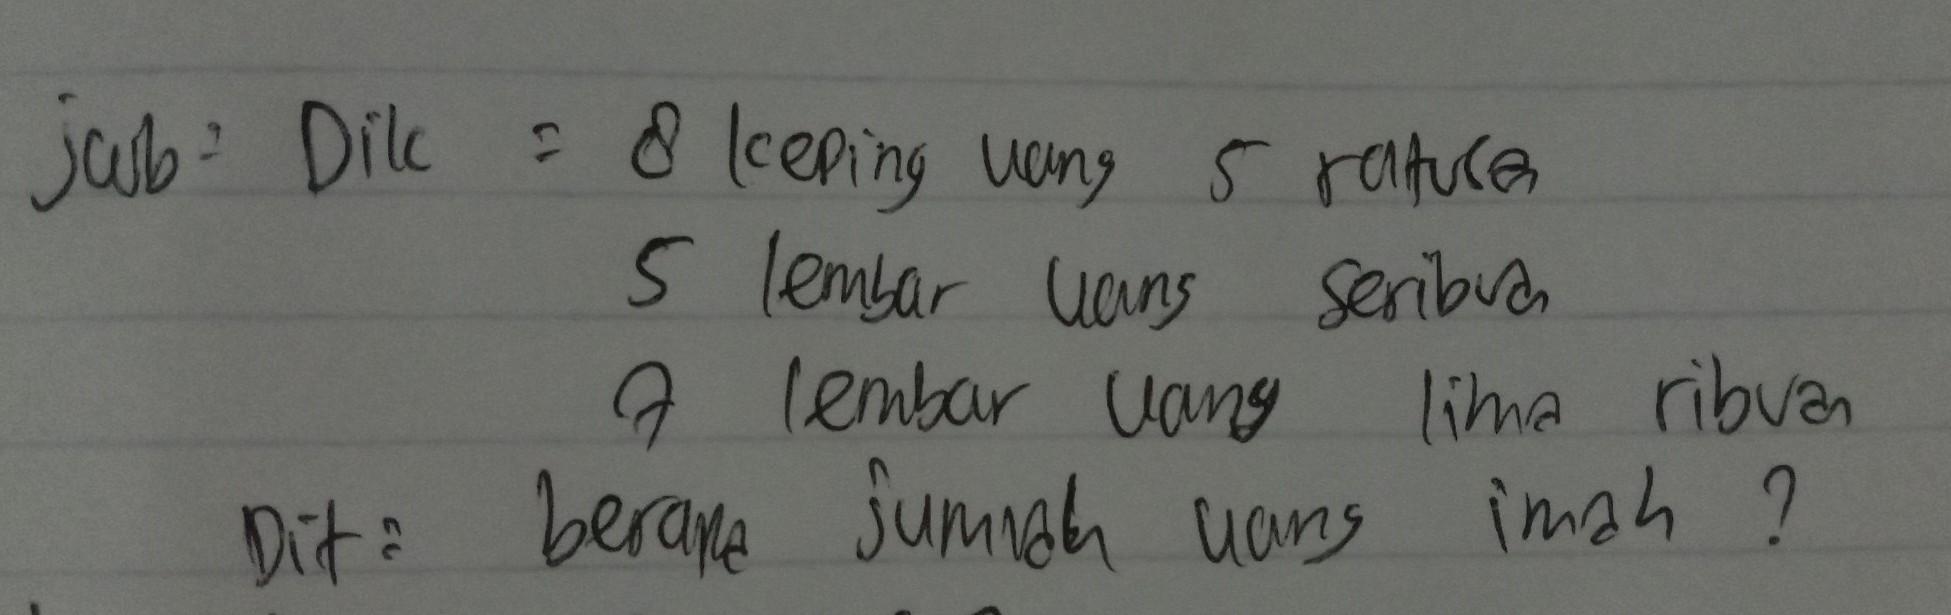 jwb = Dik = 8 keping uang 5 ratusan
5 lembar uang seribuan
7 lembar uang lima ribuan
Dit = berapa jumlah uang imah ?